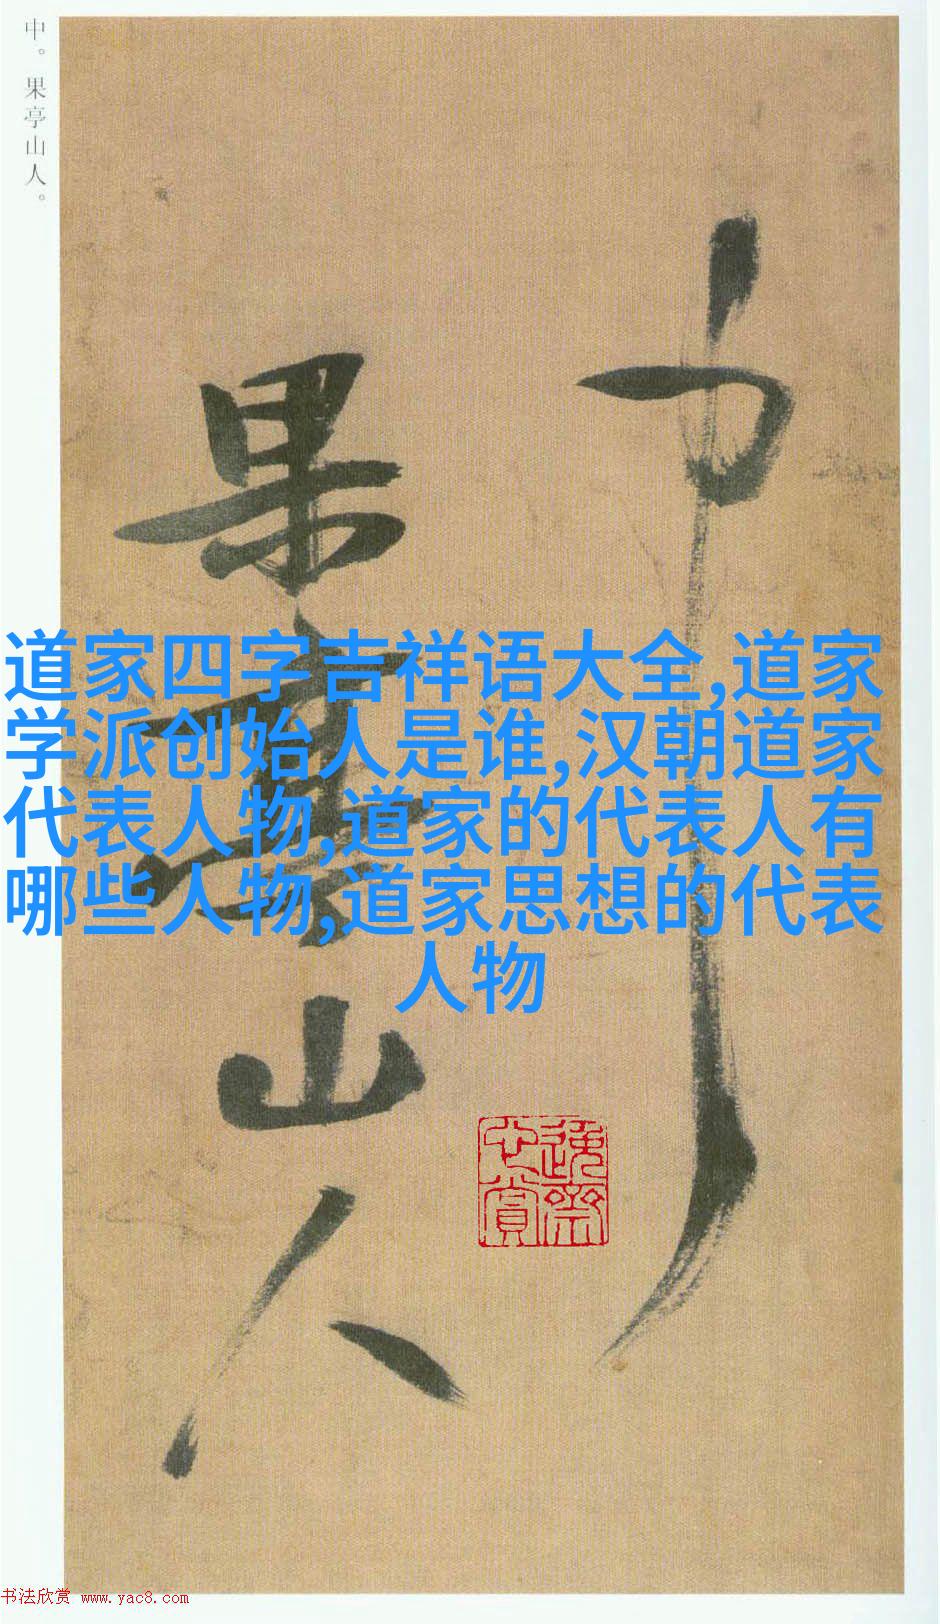 中。果亭山人。
中
果亭山人
道家四字吉祥语大全,道家
学派创始人是谁,汉朝道家
代表人物,道家的代表人有
哪些人物,道家思想的代表
人物
逸斋
心赏
书法欣赏 www.yac8.com